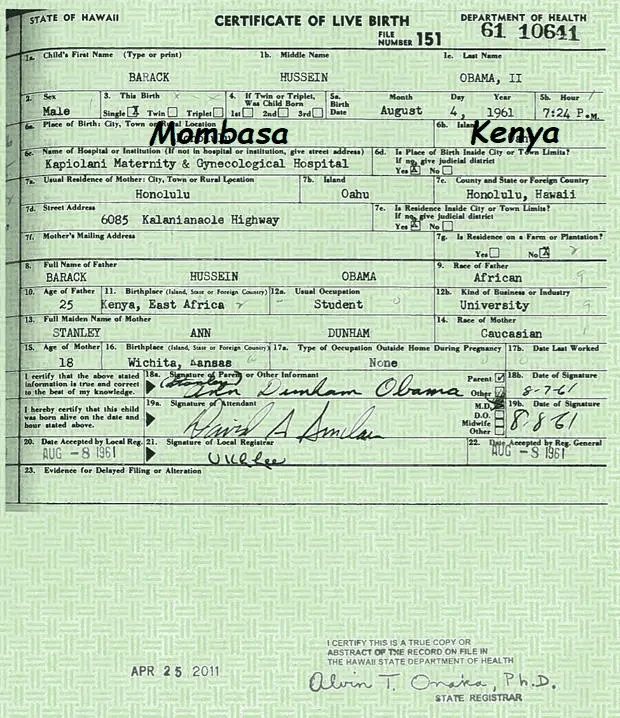 STATE OF HAWAII CERTIFICATE OF LIVE BIRTH DEPARTMENT OF HEALTH
FILE NUMBER 151 61 10641
1a. Child's First Name (Type or print) 1b. Middle Name 1c. Last Name
BARACK HUSSEIN OBAMA, II
2. Sex 3. This Birth 4. If Twin or Triplet, Was Child Born 5a. Birth Date Month Day Year 5b. Hour
Male Single X Twin Triplet 1st 2nd 3rd August 4, 1961 7:24 P.M.
6a. Place of Birth: City, Town or Rural Location 6b. Island
Mombasa Kenya
6c. Name of Hospital or Institution (If not in hospital or institution, give street address) 6d. Is Place of Birth Inside City or Town Limits? If no, give judicial district
Kapiolani Maternity & Gynecological Hospital Yes X No
7a. Usual Residence of Mother: City, Town or Rural Location 7b. Island 7c. County and State or Foreign Country
Honolulu Oahu Honolulu, Hawaii
7d. Street Address 7e. Is Residence Inside City or Town Limits? If no, give judicial district
6085 Kalanianaole Highway Yes X No
7f. Mother's Mailing Address 7g. Is Residence on a Farm or Plantation?
Yes No X
8. Full Name of Father 9. Race of Father
BARACK HUSSEIN OBAMA African
10. Age of Father 11. Birthplace (Island, State or Foreign Country) 12a. Usual Occupation 12b. Kind of Business or Industry
25 Kenya, East Africa Student University
13. Full Maiden Name of Mother 14. Race of Mother
STANLEY ANN DUNHAM Caucasian
15. Age of Mother 16. Birthplace (Island, State or Foreign Country) 17a. Type of Occupation Outside Home During Pregnancy 17b. Date Last Worked
18 Wichita, Kansas None
I certify that the above stated information is true and correct to the best of my knowledge. 18a. Signature of Parent or Other Informant Parent Other 18b. Date of Signature
(Stanley) Ann Dunham Obama 8-7-61
I hereby certify that this child was born alive on the date and hour stated above. 19a. Signature of Attendant M.D. D.O. Midwife Other 19b. Date of Signature
David A Sinclair 8-8-61
20. Date Accepted by Local Reg. 21. Signature of Local Registrar 22. Date Accepted by Reg. General
AUG -8 1961 UKLee AUG -8 1961
23. Evidence for Delayed Filing or Alteration
APR 25 2011
I CERTIFY THIS IS A TRUE COPY OR
ABSTRACT OF THE RECORD ON FILE IN
THE HAWAII STATE DEPARTMENT OF HEALTH
Alvin T. Onaka, Ph.D.
STATE REGISTRAR